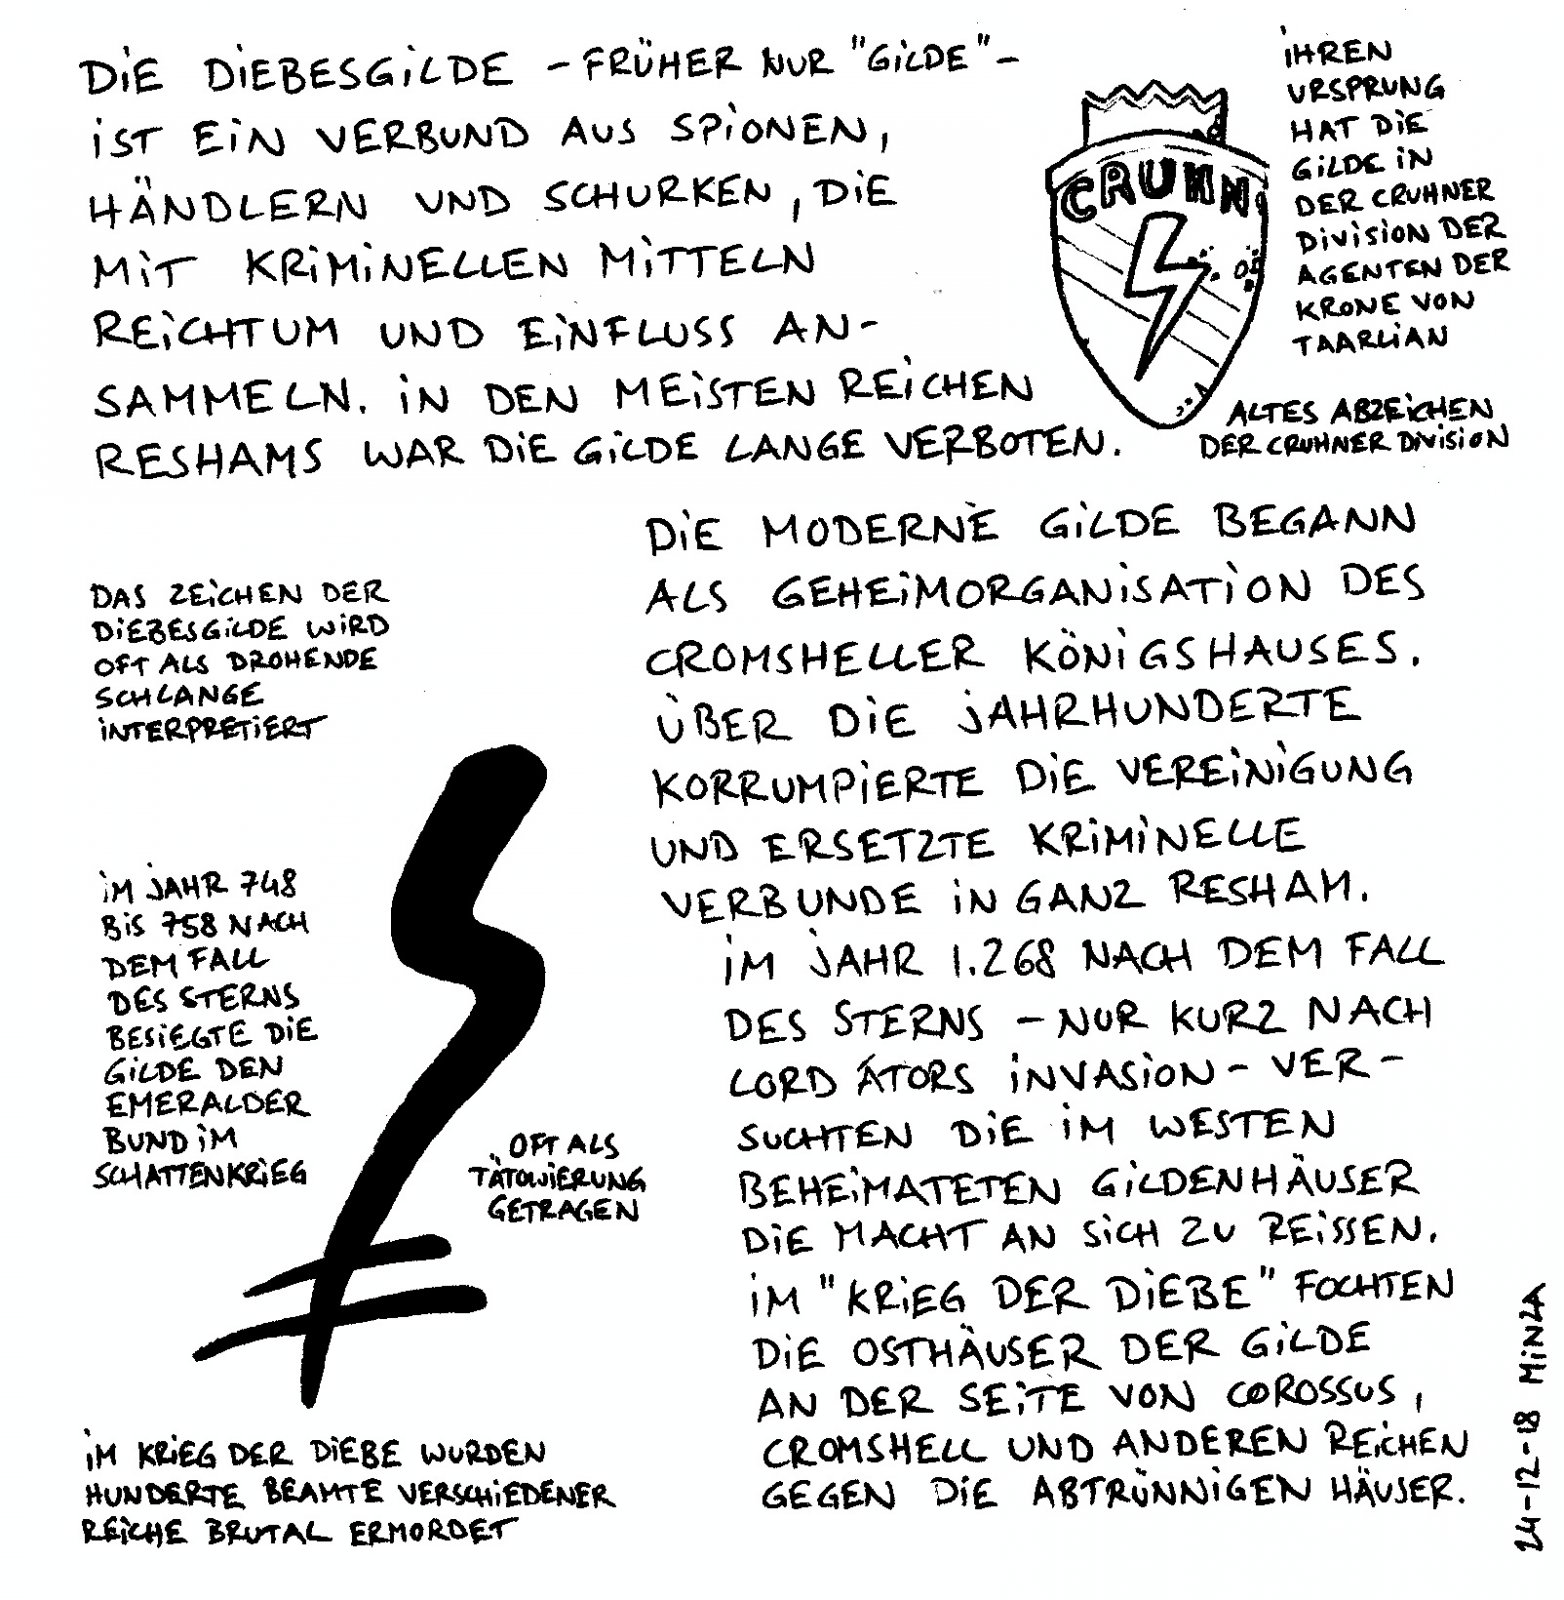 DIE DIEBESGILDE – FRÜHER NUR "GILDE" –
IST EIN VERBUND AUS SPIONEN,
HÄNDLERN UND SCHURKEN, DIE
MIT KRIMINELLEN MITTELN
REICHTUM UND EINFLUSS AN-
SAMMELN. IN DEN MEISTEN REICHEN
RESHAMS WAR DIE GILDE LANGE VERBOTEN.
CRUHN
IHREN
URSPRUNG
HAT DIE
GILDE IN
DER CRUHNER
DIVISION DER
AGENTEN DER
KRONE VON
TAARLIAN
ALTES ABZEICHEN
DER CRUHNER DIVISION
DAS ZEICHEN DER
DIEBESGILDE WIRD
OFT ALS DROHENDE
SCHLANGE
INTERPRETIERT
IM JAHR 748
BIS 758 NACH
DEM FALL
DES STERNS
BESIEGTE DIE
GILDE DEN
EMERALDER
BUND IM
SCHATTENKRIEG
OFT ALS
TÄTOWIERUNG
GETRAGEN
IM KRIEG DER DIEBE WURDEN
HUNDERTE BEAMTE VERSCHIEDENER
REICHE BRUTAL ERMORDET
DIE MODERNE GILDE BEGANN
ALS GEHEIMORGANISATION DES
CROMSHELLER KÖNIGSHAUSES.
ÜBER DIE JAHRHUNDERTE
KORRUMPIERTE DIE VEREINIGUNG
UND ERSETZTE KRIMINELLE
VERBUNDE IN GANZ RESHAM.
IM JAHR 1.268 NACH DEM FALL
DES STERNS – NUR KURZ NACH
LORD ÁTORS INVASION – VER-
SUCHTEN DIE IM WESTEN
BEHEIMATETEN GILDENHÄUSER
DIE MACHT AN SICH ZU REISSEN.
IM "KRIEG DER DIEBE" FOCHTEN
DIE OSTHÄUSER DER GILDE
AN DER SEITE VON COROSSUS,
CROMSHELL UND ANDEREN REICHEN
GEGEN DIE ABTRÜNNIGEN HÄUSER.
24-12-18 MINZA